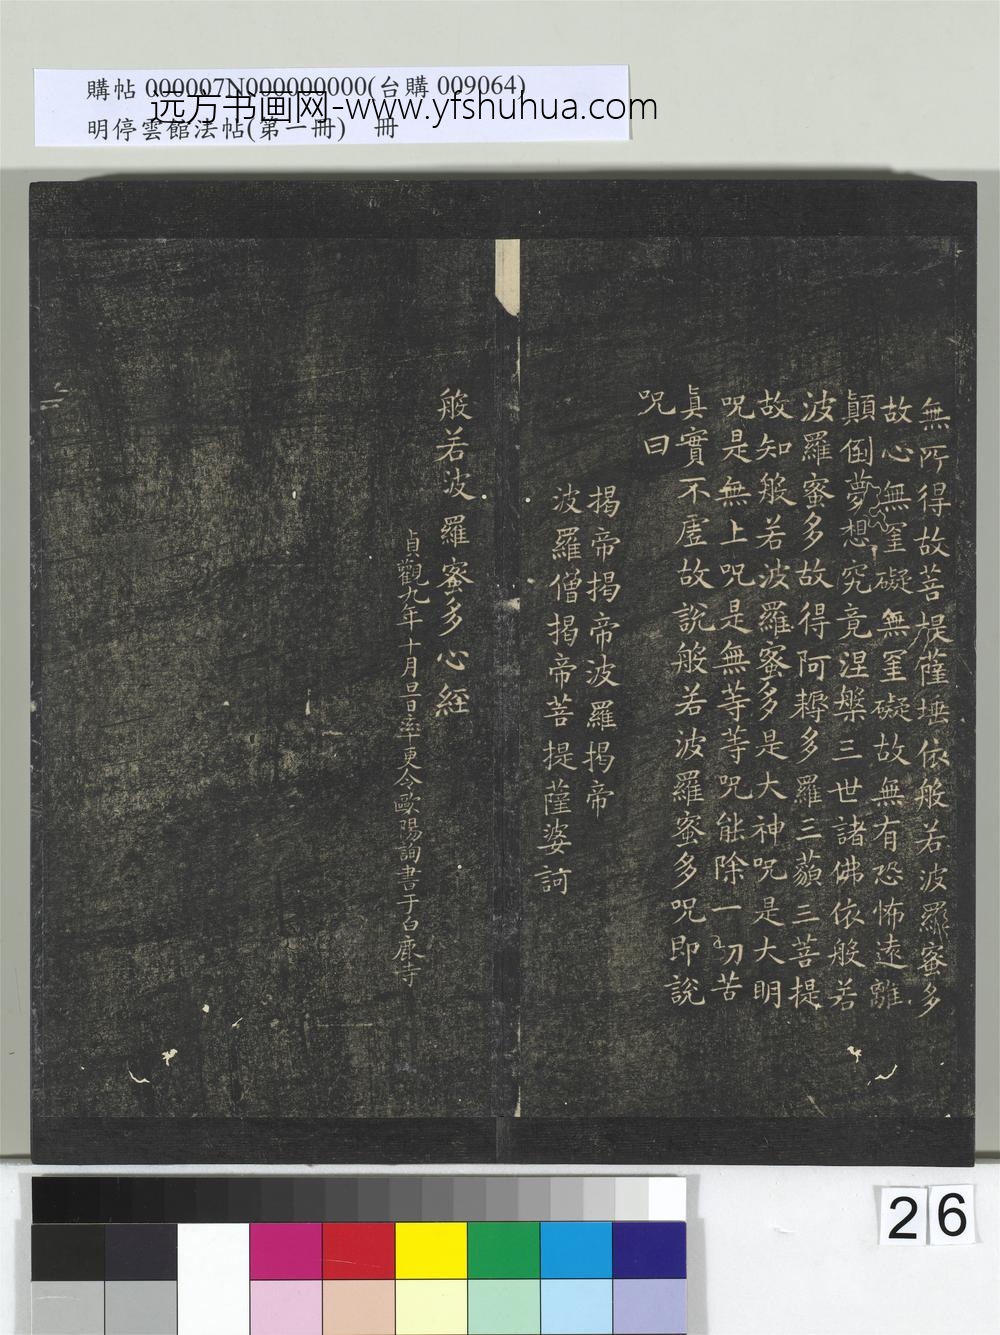 購帖 000007N000000000(台購 009064)
远方书画网-www.yfshuhua.com
明停雲館法帖(第一冊) 冊
無所得故菩提薩埵依般若波羅蜜多
故心無罣礙無罣礙故無有恐怖遠離
顛倒夢想究竟涅槃三世諸佛依般若
波羅蜜多故得阿耨多羅三藐三菩提
故知般若波羅蜜多是大神咒是大明
咒是無上咒是無等等咒能除一切苦
真實不虛故說般若波羅蜜多咒即說
咒曰
揭帝揭帝波羅揭帝
波羅僧揭帝菩提薩婆訶
般若波羅蜜多心經
貞觀九年十月旦日率更令歐陽詢書于白鹿寺
26